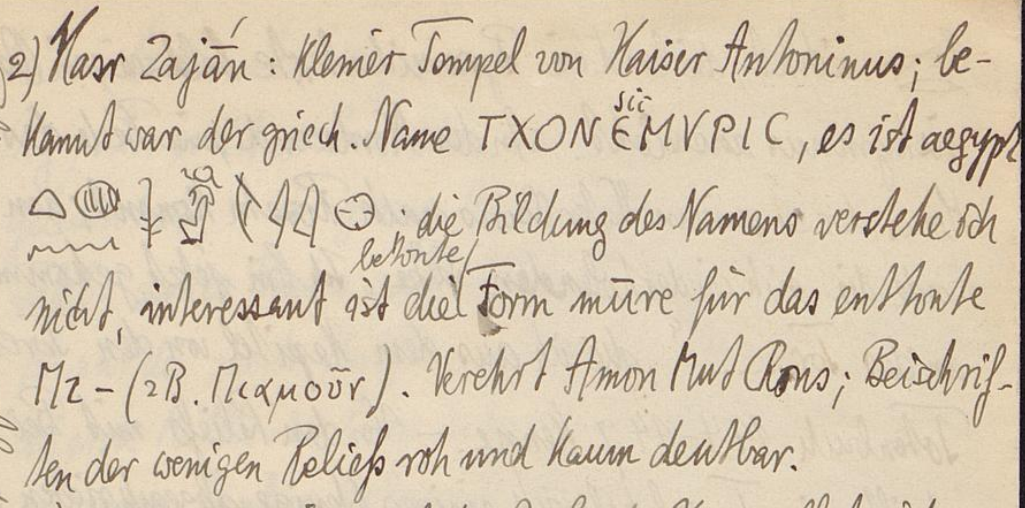 2) Kasr Zaján: Kleiner Tempel von Kaiser Antoninus; be-
kannt war der griech. Name ΤΧΟΝЄΜVΡΙC, es ist aegypt
sic
; die Bildung des Namens verstehe ich
betonte
nicht, interessant ist die Form mūre für das enttonte
Mr – (zB. Μιαμοῦr). Verehrt Amon Mut Chons; Beischrif-
ten der wenigen Reliefs roh und kaum deutbar.